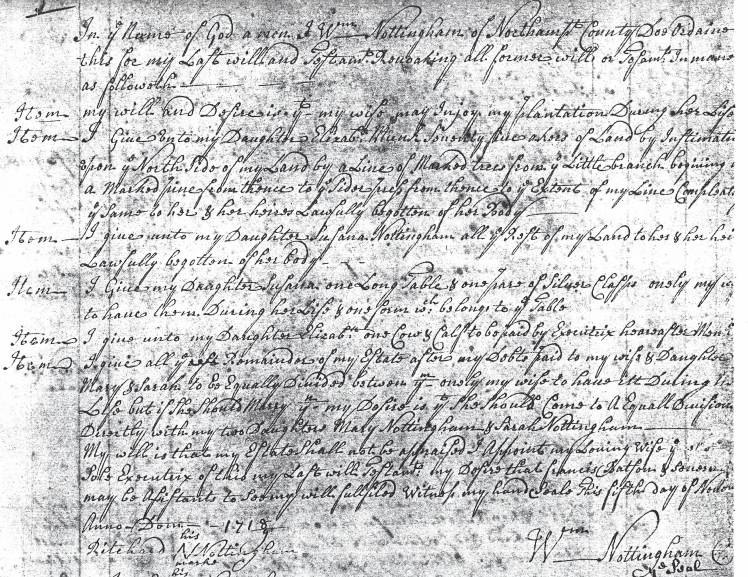 In ye Name of God amen I Wm Nottingham of Northampt County Doe ordaine
this for my Last will and Testamt. Revoaking all former wills or Testamt. In maner
as followeth
Item my will and Desire is yt my wife may Injoy my plantation During her Life
Item I Give unto my Daughter Elizabt seventy five acers of Land by Instimation
upon ye North side of my Land by a Line of Marked trees from ye Little branch begining
a Marked pine from thence to ye Sider press from thence to ye Extent of my Line Compleat
ye Same to her & her heires Lawfully begotten of her Body
Item I give unto my Daughter Susana Nottingham all ye Rest of my Land to her & her hei
Lawfully begotten of her body
Item I Give my Daughter Susana one Long Table & one pare of Silver Clasps onely my
to have them During her Life & one form wch belongs to ye Table
Item I give unto my Daughter Elizabth one Cow & Calf to be paid by Executrix heareafter Men
Item I give all ye rest Remainder of my Estate after my Debts paid to my wife & Daughter
Mary & Sarah to be Equally Divided between ym onely my wife to have itt During
Life but if She Should Marry yn my Desire is yt She Should Come to A Equall Division
Directly with my two Daughters Mary Nottingham & Sarah Nottingham
My will is that my Estate Shall not be appraised I Appoint my Loving Wife
Sole Executrix of this my Last will Testamt. my Desire that frances Batson &
may be Assistants to See my will fulfiled Witness my hand & Seale This fifth day of
Anno Dom 1718
Ritchard his N Nottingham
marke
his
Wm Nottingham
ye Seal